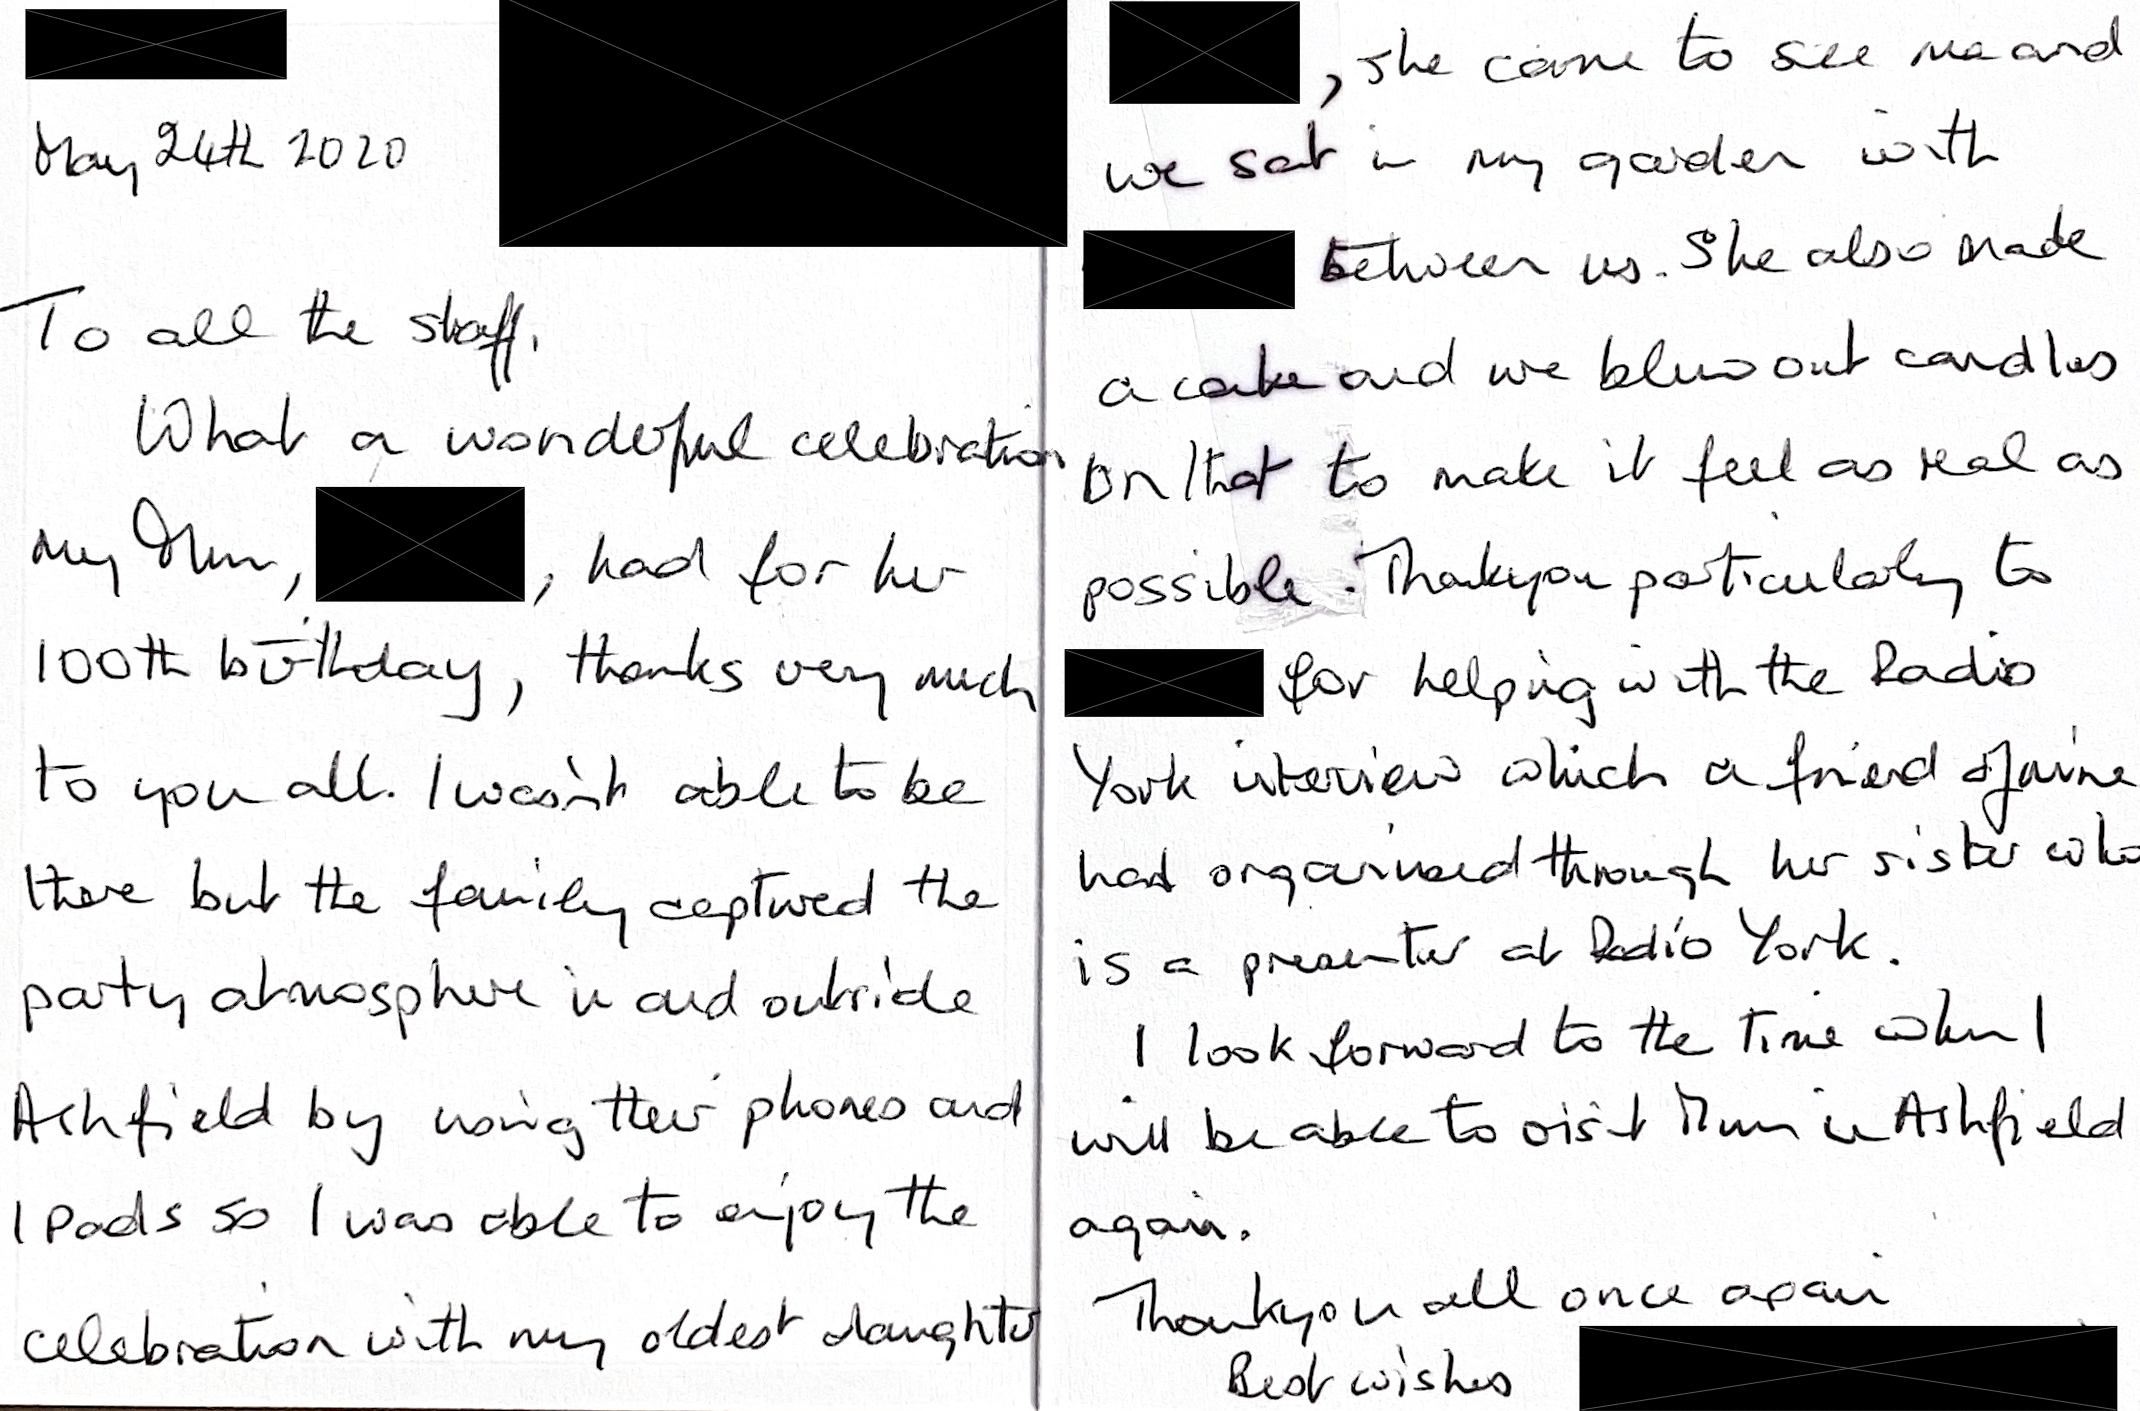 May 24th 2020
To all the staff,
What a wonderful celebration
my Mum, , had for her
100th birthday, thanks very much
to you all. I wasn't able to be
there but the family captured the
party atmosphere in and outside
Ashfield by using their phones and
I Pads so I was able to enjoy the
celebration with my oldest daughter
, she came to see me and
we sat in my garden with
between us. She also made
a cake and we blew out candles
on that to make it feel as real as
possible. Thankyou particularly to
for helping with the Radio
York interview which a friend of mine
had organised through her sister who
is a presenter at Radio York.
I look forward to the time when I
will be able to visit Mum in Ashfield
again.
Thankyou all once again
Best wishes